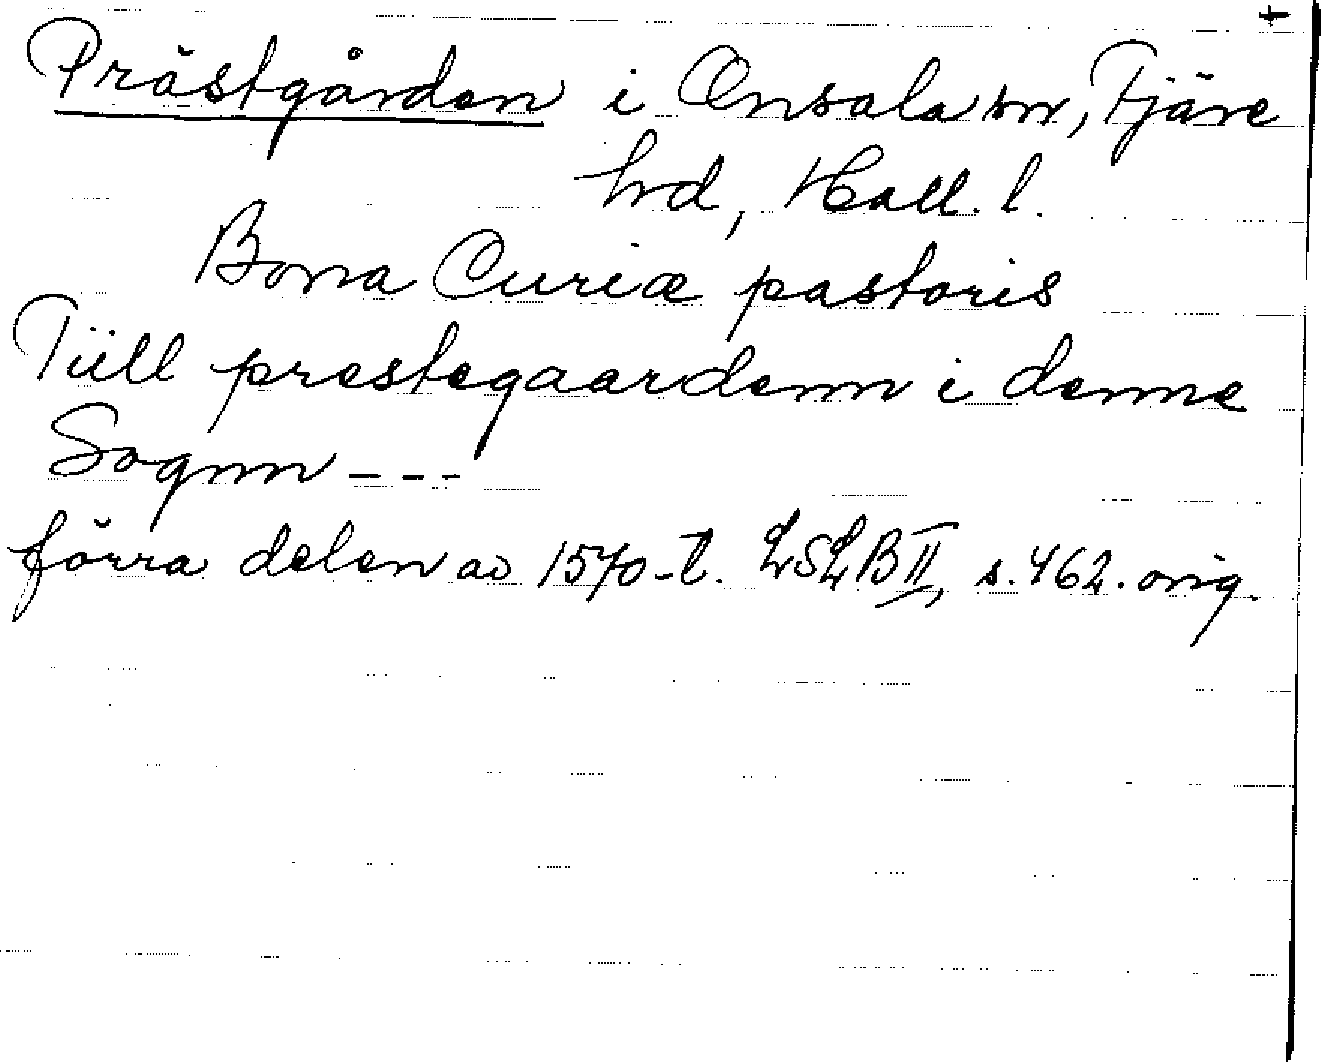 Prästgården i Onsala sn, Fjäre
hd, Hall. l.
Bona Curiæ pastoris
Tiill prestegaardenn i denne
Sognn ---
förra delen av 1570-t. LSLB II, s. 462. orig.